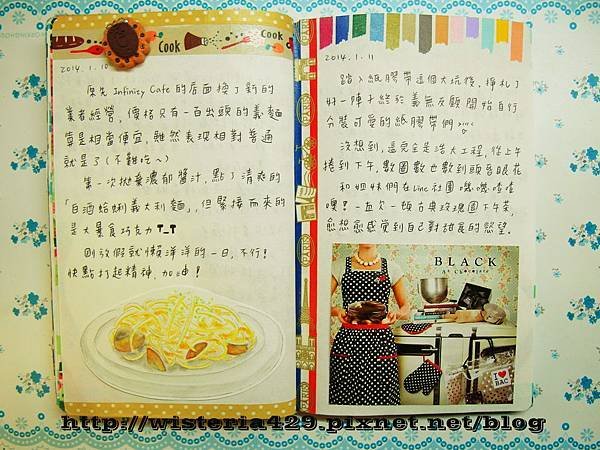 Cook
Cook
2014.1.10
原先Infinity Cafe的店面換了新的
業者經營，價格只有一百出頭的義麵
算是相當便宜，雖然表現相對普通
就是了（不難吃～）
第一次拋棄濃郁醬汁，點了清爽的
「白酒蛤蜊義大利麵」，但緊接而來的
是大量食巧克力T_T
剛放假就懶洋洋的一日，不行！
快點打起精神，加油！
2014.1.11
踏入紙膠帶這個大坑後，掙扎了
好一陣子終於義無反顧開始自行
分裝可愛的紙膠帶們
沒想到，這完全是浩大工程，從上午
捲到下午，數圈數也數到頭昏眼花
和姐妹們在Line社團嘰嘰喳喳
噢！一直吃一頓古典玫瑰園下午茶，
愈想愈感覺到自己對甜食的慾望。
PARIS
PARIS
PARIS
BLACK
As Chocolate
I ♥
BAC
http://wisteria429.pixnet.net/blog